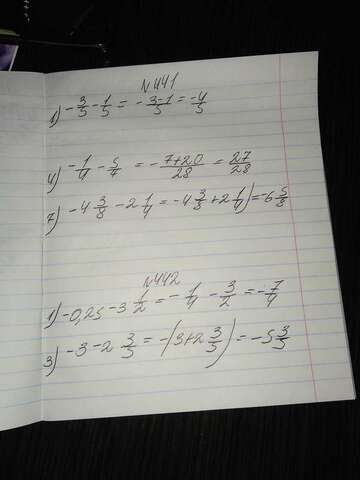 N441
1) -3/5 - 1/5 = -3-1/5 = -4/5
4) -1/4 - 5/7 = -7+20/28 = 27/28
7) -4 3/8 - 2 1/4 = -4 3/8 + 2 1/4) = -6 5/8
N442
1) -0,25 - 3 1/2 = -1/4 - 3/2 = -7/4
3) -3 - 2 3/5 = -(3+2 3/5) = -5 3/5